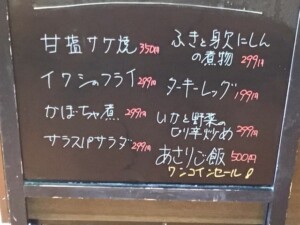 甘塩サケ焼 350円
イワシのフライ 299円
かぼちゃ煮 299円
サラスパサラダ 299円
ふきと身欠にしん
の煮物 299円
ターキーレッグ 199円
いかと野菜の
ピリ辛炒め 299円
あさりご飯 500円
ワンコインセール!